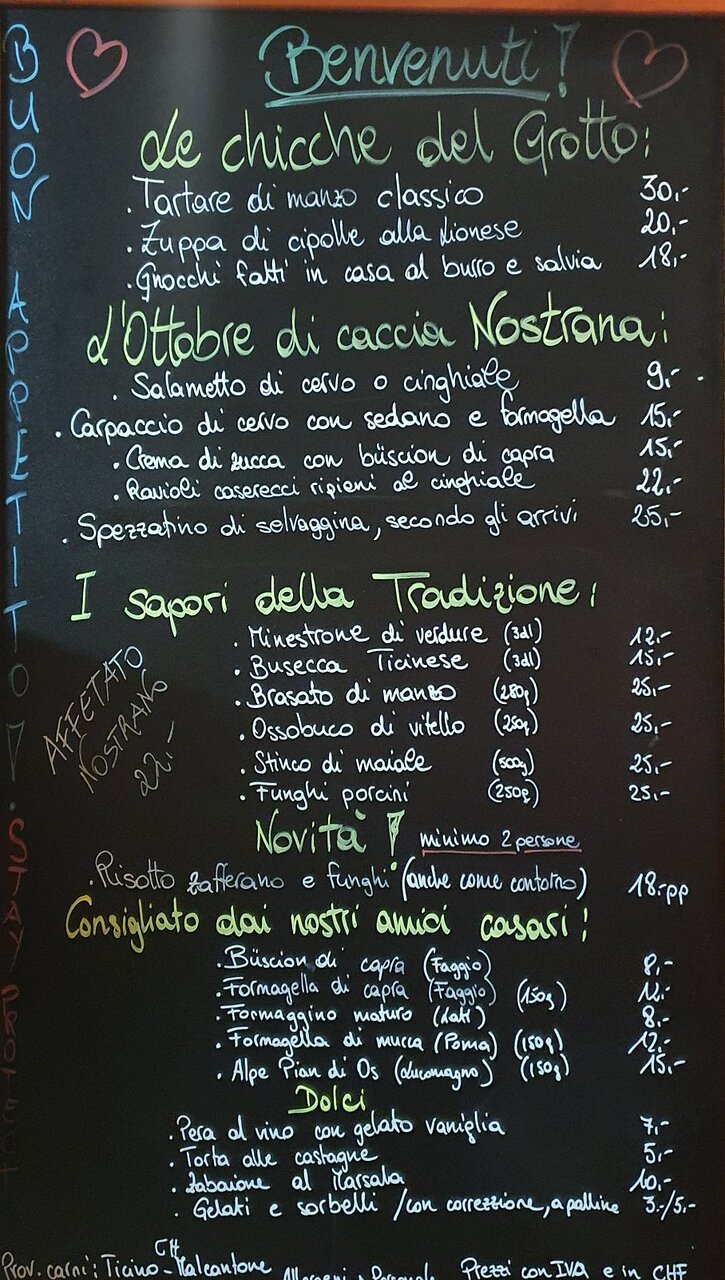 Benvenuti!
Le chicche del Grotto:
. Tartare di manzo classico 30,-
. Zuppa di cipolle alla Lionese 20,-
. Gnocchi fatti in casa al burro e salvia 18,-
L'Ottobre di caccia Nostrana:
. Salametto di cervo o cinghiale 9,-
. Carpaccio di cervo con sedano e formagella 15,-
. Crema di zucca con büscion di capra 15,-
. Ravioli caserecci ripieni al cinghiale 22,-
. Spezzatino di selvaggina, secondo gli arrivi 25,-
I sapori della Tradizione:
. Minestrone di verdure (3dl) 12,-
. Busecca Ticinese (3dl) 15,-
. Brasato di manzo (280g) 25,-
. Ossobuco di vitello (250g) 25,-
. Stinco di maiale (500g) 25,-
. Funghi porcini (250g) 25,-
AFFETATO
NOSTRANO
22,-
Novità! minimo 2 persone
. Risotto zafferano e funghi (anche come contorno) 18.-pp
Consigliato dai nostri amici casari!
. Büscion di capra (Faggio) 8,-
. Formagella di capra (Faggio) (150g) 12,-
. Formaggino maturo (Lati) 8,-
. Formagella di mucca (Poma) (150g) 12,-
. Alpe Pian di Os (Lucomagno) (150g) 15,-
Dolci
. Pera al vino con gelato vaniglia 7,-
. Torta alle castagne 5,-
. Zabaione al Marsala 10,-
. Gelati e sorbelli /con correzzione, a palline 3.-/5,-
Prov. carni: Ticino CH - Malcantone Allergeni Personale Prezzi con IVA e in CHF
BUON APPETITO!
. STAY PROTECT